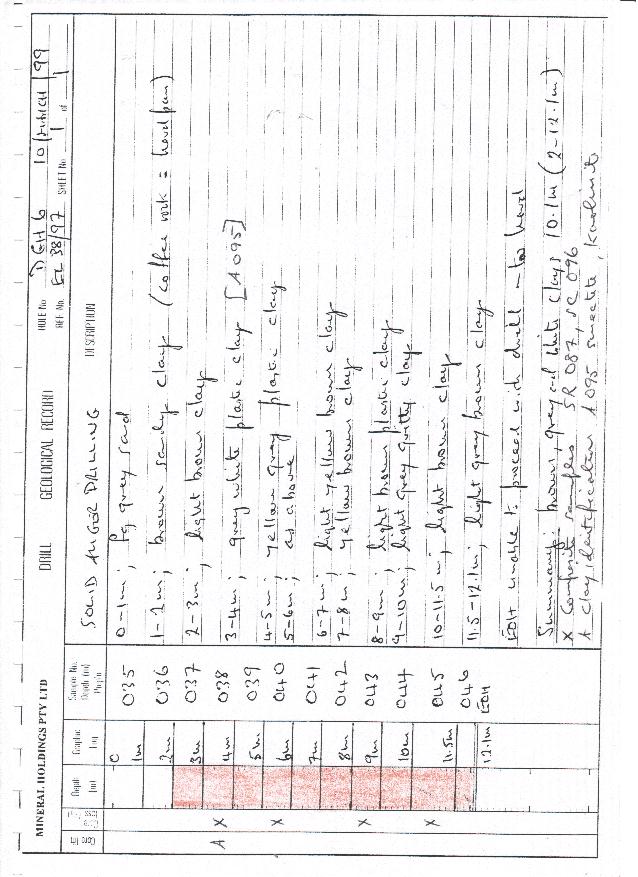 MINERAL HOLDINGS PTY LTD
DRILL GEOLOGICAL RECORD
HOLE No DEH 6 10/MARCH/99
REF No. EL 38/97 SHEET No 1 of 1
Core lift
Core loss
Depth (m)
Graphic Log
Sample No.
Depth (m)
DESCRIPTION
SOLID AUGER DRILLING
0
035 0-1m; fg grey sand
1m
036 1-2m; brown sandy clay (coffee rock = hardpan)
2m
037 2-3m; light brown clay
3m
A X 4m 038 3-4m; grey white plastic clay [A095]
5m 039 4-5m; yellow grey plastic clay
X 6m 040 5-6m; as above
7m 041 6-7m; light yellow brown clay
8m 042 7-8m; yellow brown clay
X 9m 043 8-9m; light brown plastic clay
10m 044 9-10m; light grey gritty clay
X 11.5m 045 10-11.5m; light brown clay
12.1m 046 11.5-12.1m; light grey brown clay
EOH EOH unable to proceed with drill - too hard
Summary: brown, grey and white clays 10.1m (2-12.1m)
X Composite samples SR 087, SC 096
A clay identification A095 smectite, kaolinite